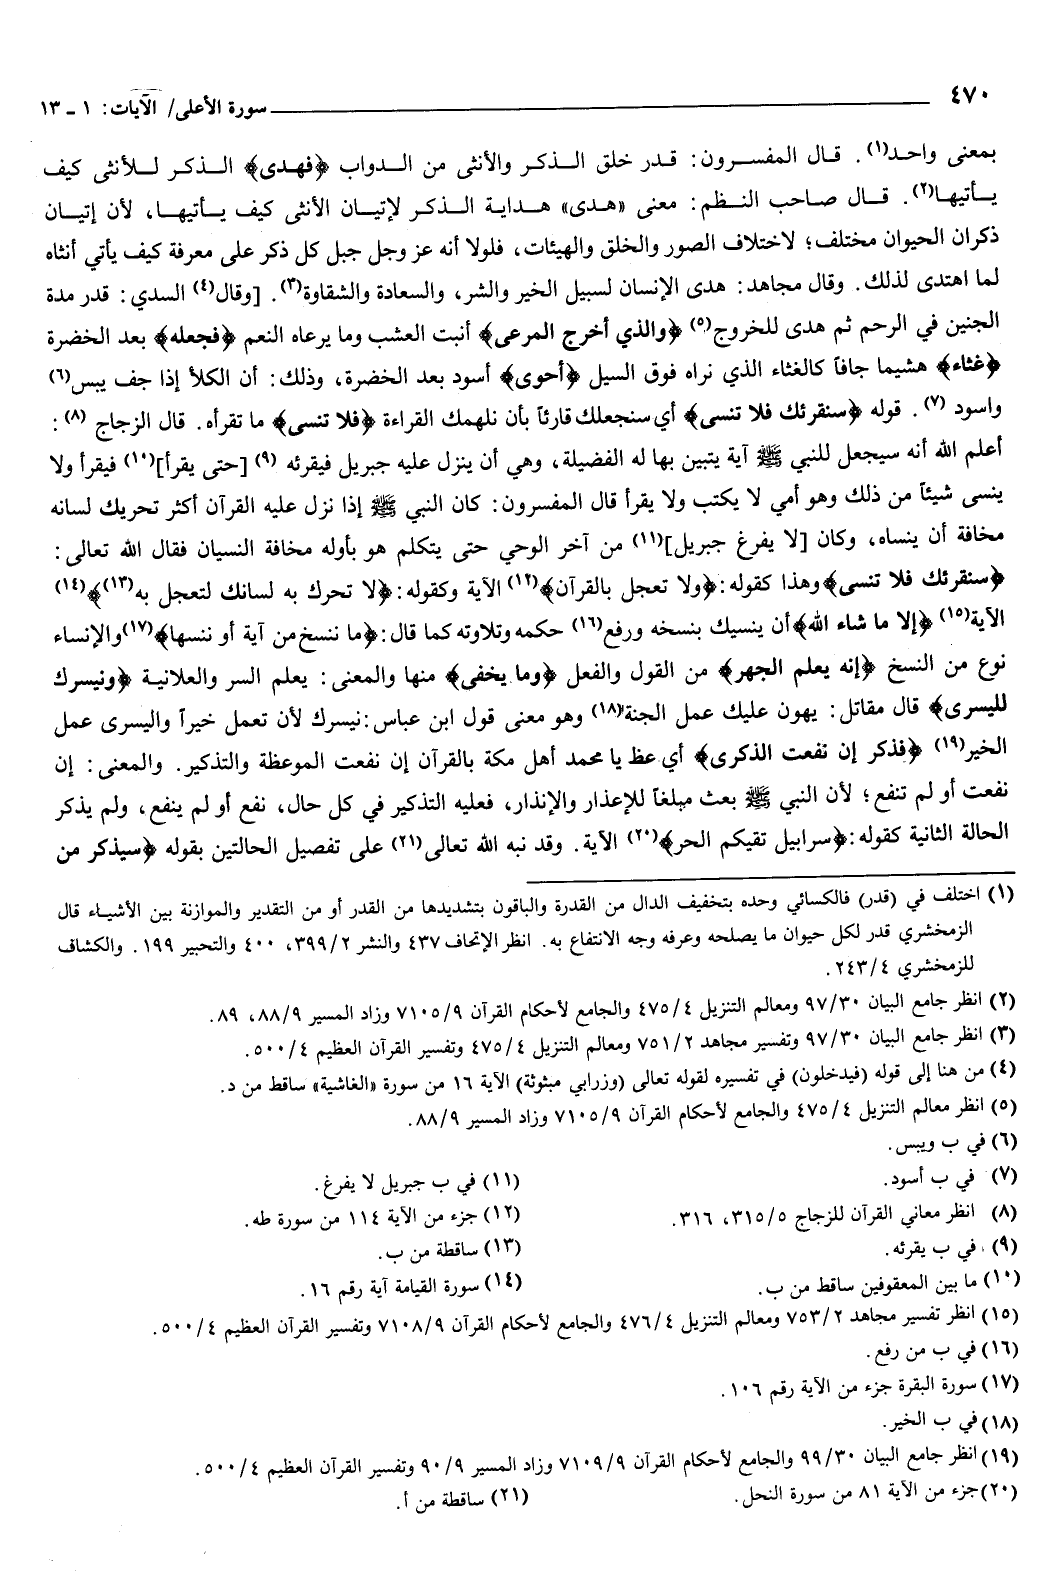 ٤٧٠ سورة الأعلى/ الآيات: ١ - ١٣
بمعنى واحد(١). قال المفسرون: قدر خلق الذكر والأنثى من الدواب ﴿فهدى﴾ الذكر للأنثى كيف
يأتيها(٢). قال صاحب النظم: معنى «هدى» هداية الذكر لإتيان الأنثى كيف يأتيها، لأن إتيان
ذكران الحيوان مختلف؛ لاختلاف الصور والخلق والهيئات، فلولا أنه عز وجل جبل كل ذكر على معرفة كيف يأتي أنثاه
لما اهتدى لذلك. وقال مجاهد: هدى الإنسان لسبيل الخير والشر، والسعادة والشقاوة(٣). [وقال(٤) السدي: قدر مدة
الجنين في الرحم ثم هدى للخروج(٥) ﴿والذي أخرج المرعى﴾ أنبت العشب وما يرعاه النعم ﴿فجعله﴾ بعد الخضرة
﴿غثاء﴾ هشيما جافاً كالغثاء الذي نراه فوق السيل ﴿أحوى﴾ أسود بعد الخضرة، وذلك: أن الكلأ إذا جف يبس(٦)
واسود (٧). قوله ﴿سنقرئك فلا تنسى﴾ أي سنجعلك قارئاً بأن نلهمك القراءة ﴿فلا تنسى﴾ ما تقرأه. قال الزجاج (٨):
أعلم الله أنه سيجعل للنبي ﷺ آية يتبين بها له الفضيلة، وهي أن ينزل عليه جبريل فيقرئه (٩) [حتى يقرأ](١٠) فيقرأ ولا
ينسى شيئاً من ذلك وهو أمي لا يكتب ولا يقرأ قال المفسرون: كان النبي ﷺ إذا نزل عليه القرآن أكثر تحريك لسانه
مخافة أن ينساه، وكان [لا يفرغ جبريل](١١) من آخر الوحي حتى يتكلم هو بأوله مخافة النسيان فقال الله تعالى:
﴿سنقرئك فلا تنسى﴾ وهذا كقوله: ﴿ولا تعجل بالقرآن﴾(١٢) الآية وكقوله: ﴿لا تحرك به لسانك لتعجل به(١٣)﴾(١٤)
الآية(١٥) ﴿إلا ما شاء الله﴾ أن ينسيك بنسخه ورفع(١٦) حكمه وتلاوته كما قال: ﴿ما ننسخ من آية أو ننسها﴾(١٧) والإنساء
نوع من النسخ ﴿إنه يعلم الجهر﴾ من القول والفعل ﴿وما يخفى﴾ منها والمعنى: يعلم السر والعلانية ﴿ونيسرك
لليسرى﴾ قال مقاتل: يهون عليك عمل الجنة(١٨) وهو معنى قول ابن عباس: نيسرك لأن تعمل خيراً واليسرى عمل
الخير(١٩) ﴿فذكر إن نفعت الذكرى﴾ أي عظ يا محمد أهل مكة بالقرآن إن نفعت الموعظة والتذكير. والمعنى: إن
نفعت أو لم تنفع؛ لأن النبي ﷺ بعث مبلغاً للإعذار والإنذار، فعليه التذكير في كل حال، نفع أو لم ينفع، ولم يذكر
الحالة الثانية كقوله: ﴿سرابيل تقيكم الحر﴾(٢٠) الآية. وقد نبه الله تعالى(٢١) على تفصيل الحالتين بقوله ﴿سيذكر من
(١) اختلف في (قدر) فالكسائي وحده بتخفيف الدال من القدرة والباقون بتشديدها من القدر أو من التقدير والموازنة بين الأشياء قال
الزمخشري قدر لكل حيوان ما يصلحه وعرفه وجه الانتفاع به. انظر الإتحاف ٤٣٧ والنشر ٣٩٩/٢، ٤٠٠ والتحبير ١٩٩. والكشاف
للزمخشري ٢٤٣/٤.
(٢) انظر جامع البيان ٩٧/٣٠ ومعالم التنزيل ٤٧٥/٤ والجامع لأحكام القرآن ٧١٠٥/٩ وزاد المسير ٨٨/٩، ٨٩.
(٣) انظر جامع البيان ٩٧/٣٠ وتفسير مجاهد ٧٥١/٢ ومعالم التنزيل ٤٧٥/٤ وتفسير القرآن العظيم ٥٠٠/٤.
(٤) من هنا إلى قوله (فيدخلون) في تفسيره لقوله تعالى (وزرابي مبثوثة) الآية ١٦ من سورة «الغاشية» ساقط من د.
(٥) انظر معالم التنزيل ٤٧٥/٤ والجامع لأحكام القرآن ٧١٠٥/٩ وزاد المسير ٨٨/٩.
(٦) في ب ويبس.
(٧) في ب أسود. (١١) في ب جبريل لا يفرغ.
(٨) انظر معاني القرآن للزجاج ٣١٥/٥، ٣١٦. (١٢) جزء من الآية ١١٤ من سورة طه.
(٩) في ب يقرئه. (١٣) ساقطة من ب.
(١٠) ما بين المعقوفين ساقط من ب. (١٤) سورة القيامة آية رقم ١٦.
(١٥) انظر تفسير مجاهد ٧٥٣/٢ ومعالم التنزيل ٤٧٦/٤ والجامع لأحكام القرآن ٧١٠٨/٩ وتفسير القرآن العظيم ٥٠٠/٤.
(١٦) في ب من رفع.
(١٧) سورة البقرة جزء من الآية رقم ١٠٦.
(١٨) في ب الخير.
(١٩) انظر جامع البيان ٩٩/٣٠ والجامع لأحكام القرآن ٧١٠٩/٩ وزاد المسير ٩٠/٩ وتفسير القرآن العظيم ٥٠٠/٤.
(٢٠) جزء من الآية ٨١ من سورة النحل. (٢١) ساقطة من أ.